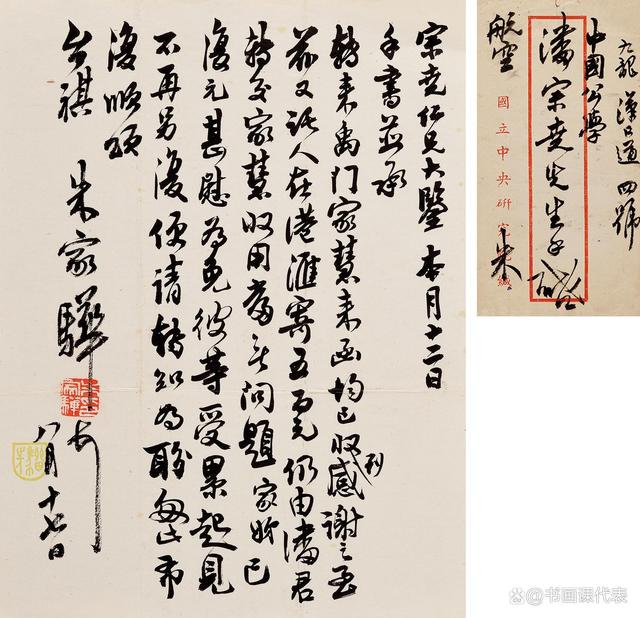 宋堯仁兄大鑒 本月十二日
手書並承
轉来禹門家慧来函均已收到感謝之至
前又託人在港滙寄五百元仍由潘君
轉交家慧收用當無問題家姊已
復元甚慰為免彼等受累起見
不再另復便請轉知為盼匆此布
復順頌
台祺
朱家驊
八月十七日
九龍漢口道四號
中國公學
潘宋堯先生手啟
國立中央研究院緘
朱
航空
@书画课代表